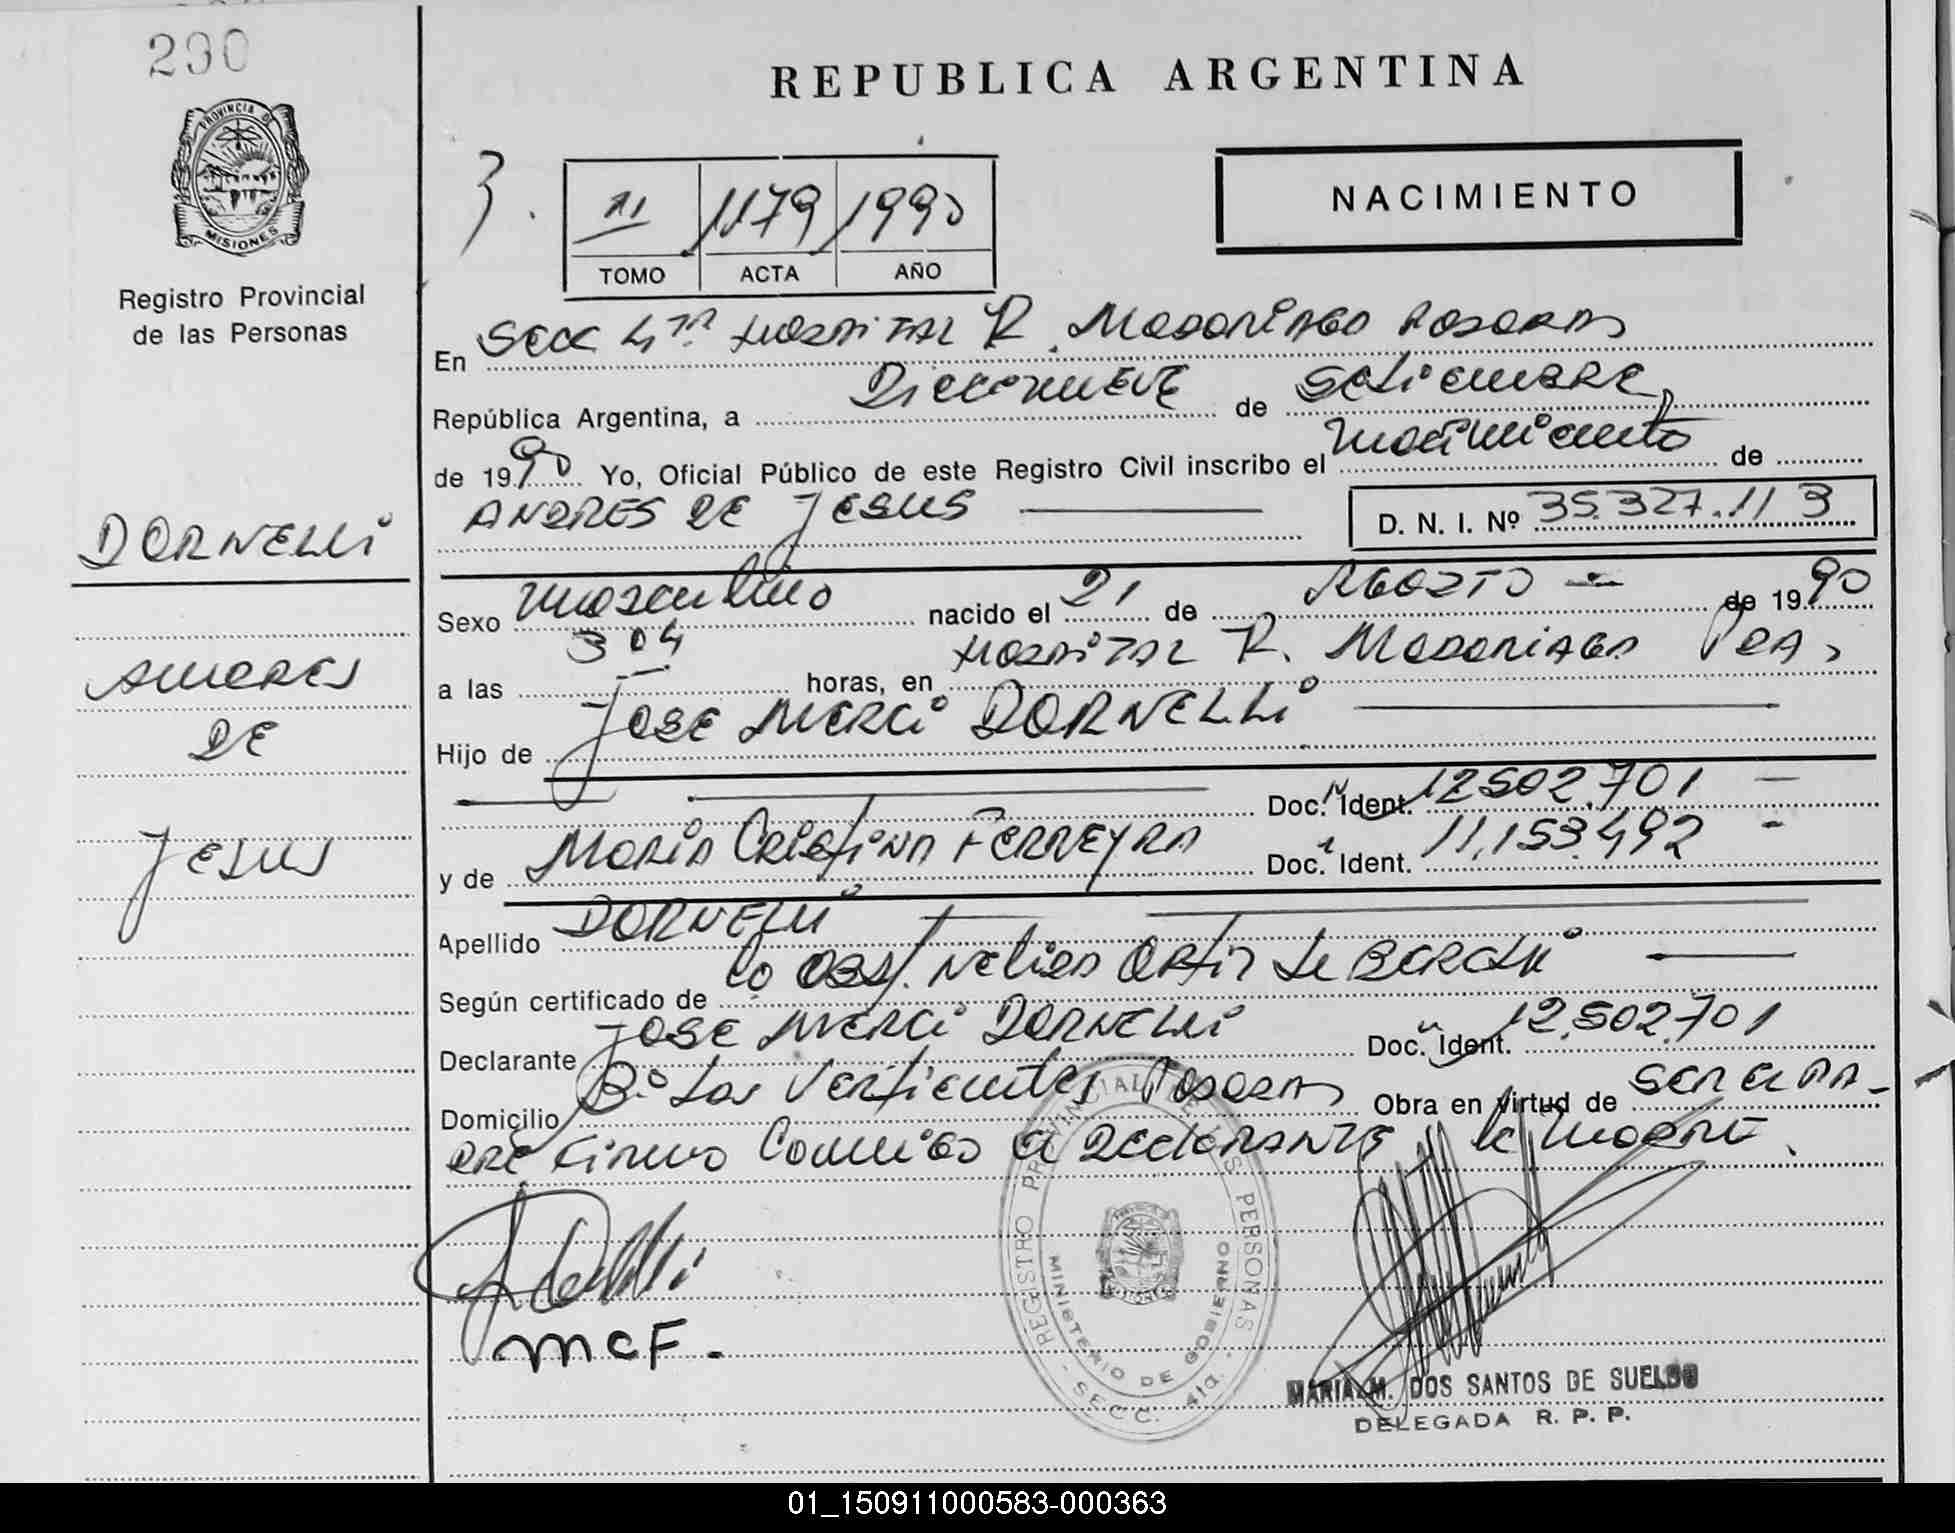 290
PROVINCIA DE
MISIONES
Registro Provincial
de las Personas
DORNELLI
ANDRES
DE
JESUS
REPUBLICA ARGENTINA
3.
II 1179 1990
TOMO ACTA AÑO
NACIMIENTO
En Secc 4ta Hospital R. Madariaga Posadas
República Argentina, a Diecinueve de Setiembre
de 1990 Yo, Oficial Público de este Registro Civil inscribo el nacimiento de
ANDRES DE JESUS
D. N. I. Nº 35.327.113
Sexo masculino nacido el 21 de AGOSTO - de 1990
a las 304 horas, en Hospital R. Madariaga Pdas,
Hijo de JOSE MERCI DORNELLI
Doc. Ident. 12.502.701 -
y de Maria Cristina FERREYRA Doc. Ident. 11.153.492 -
Apellido DORNELLI
Según certificado de la Obst. Nelida Ortiz de
Declarante JOSE MERCI DORNELLI Doc. Ident. 12.502.701
Domicilio Bº Las Vertientes Posadas Obra en virtud de ser el pa-
dre firma conmigo el declarante y la madre.
REGISTRO PROVINCIAL DE LAS PERSONAS
MINISTERIO DE GOBIERNO
- SECC. 4ta. -
MCF.
MARIA M. DOS SANTOS DE SUELDO
DELEGADA R. P. P.
01_150911000583-000363